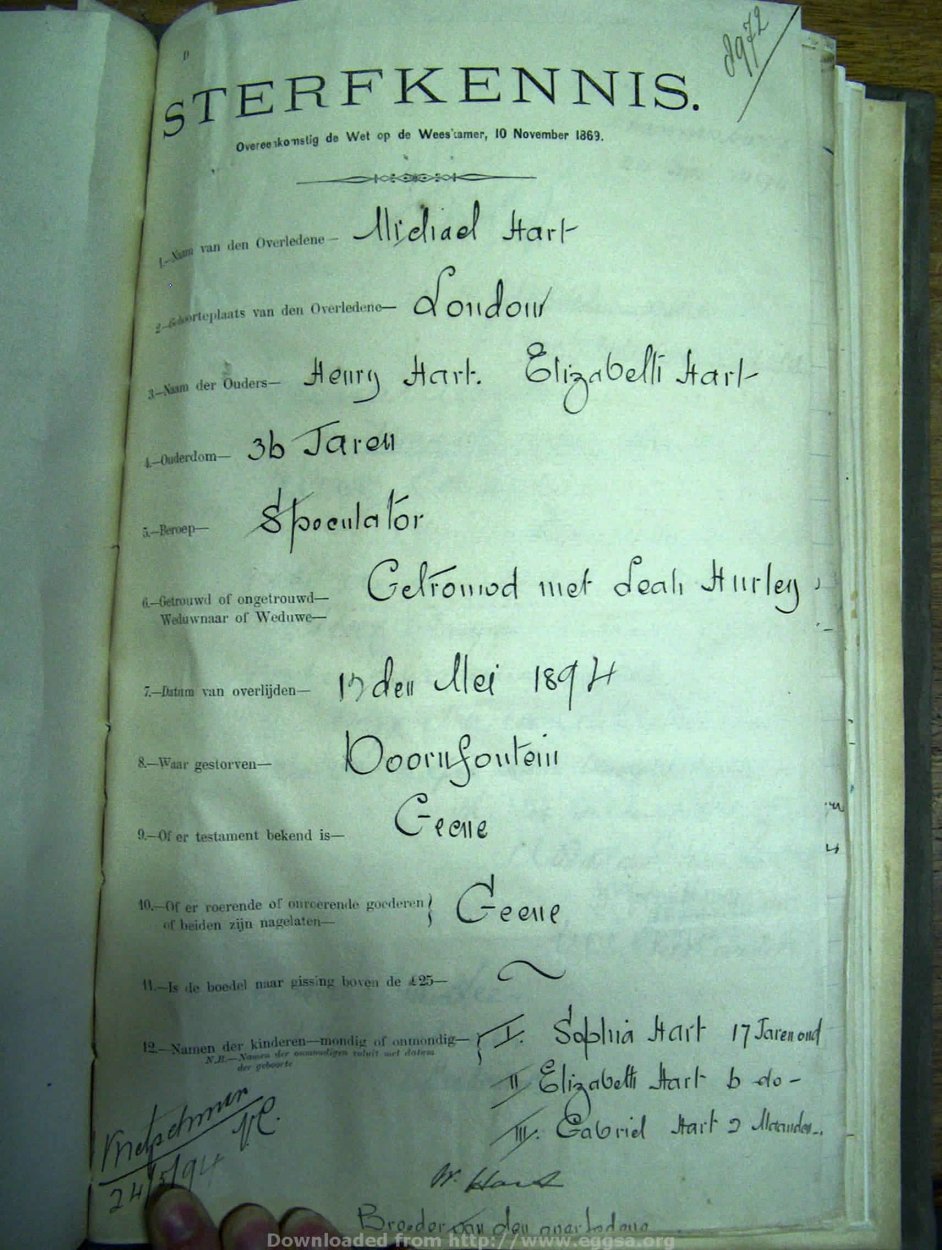 8972
STERFKENNIS.
Overeenkomstig de Wet op de Weeskamer, 10 November 1869.
1.—Naam van den Overledene— Michael Hart
2—Geboorteplaats van den Overledene— London
3—Naam der Ouders— Henry Hart. Elizabeth Hart
4.—Ouderdom— 36 Jaren
5.—Beroep— Speculator
6.—Getrouwd of ongetrouwd— Getrouwd met Leah Hurley
Weduwnaar of Weduwe—
7.—Datum van overlijden— 17 den Mei 1894
8.—Waar gestorven— Doornfontein
9.—Of er testament bekend is— Geene
10.—Of er roerende of onroerende goederen } Geene
of beiden zijn nagelaten—
11.—Is de boedel naar gissing boven de £25— ~
12.—Namen der kinderen—mondig of onmondig— { I. Sophia Hart 17 Jaren oud
N.B.—Namen der onmondigen voluit met datum
der geboorte
II Elizabeth Hart 6 do -
III. Gabriel Hart 2 Maanden.
24/5/94
W. Hart
Broeder van den overledene
Downloaded from http://www.eggsa.org